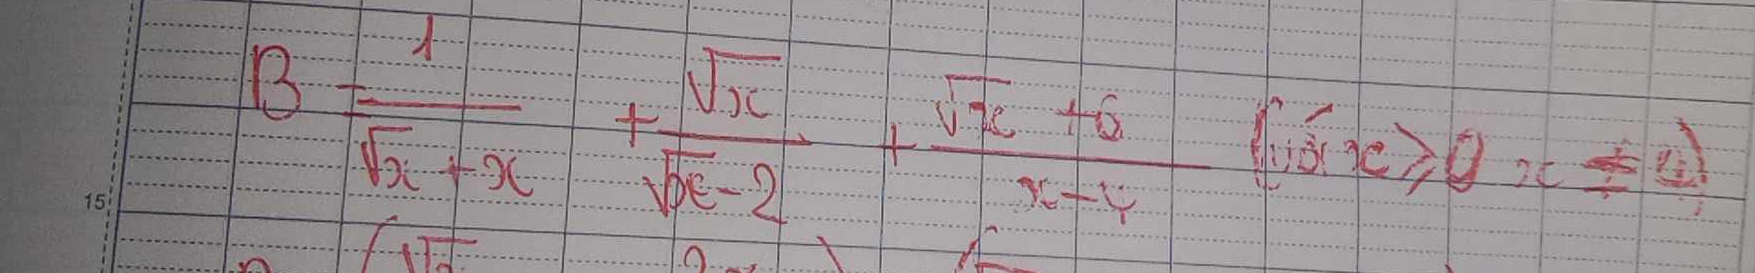 15
B = 1/(√x + x) + √x/(√x - 2) + (√x + 6)/(x - 4) (với x ≥ 0 x ≠ 4)